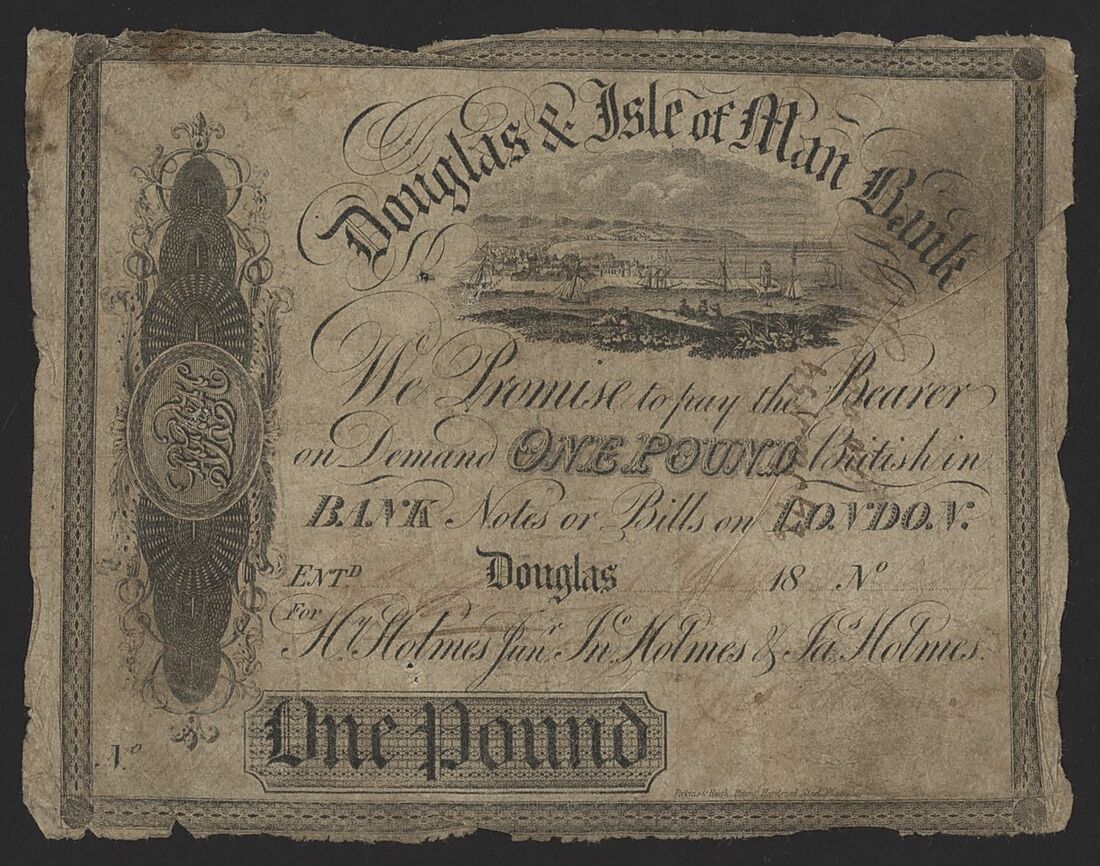 Douglas & Isle of Man Bank
We Promise to pay the Bearer
on Demand ONE POUND British in
BANK Notes or Bills on LONDON.
ENTD Douglas 18 No
For
Hy. Holmes Junr. Jno. Holmes & Jas. Holmes.
One Pound
No
Perkins & Heath, Patent Hardened Steel Plate